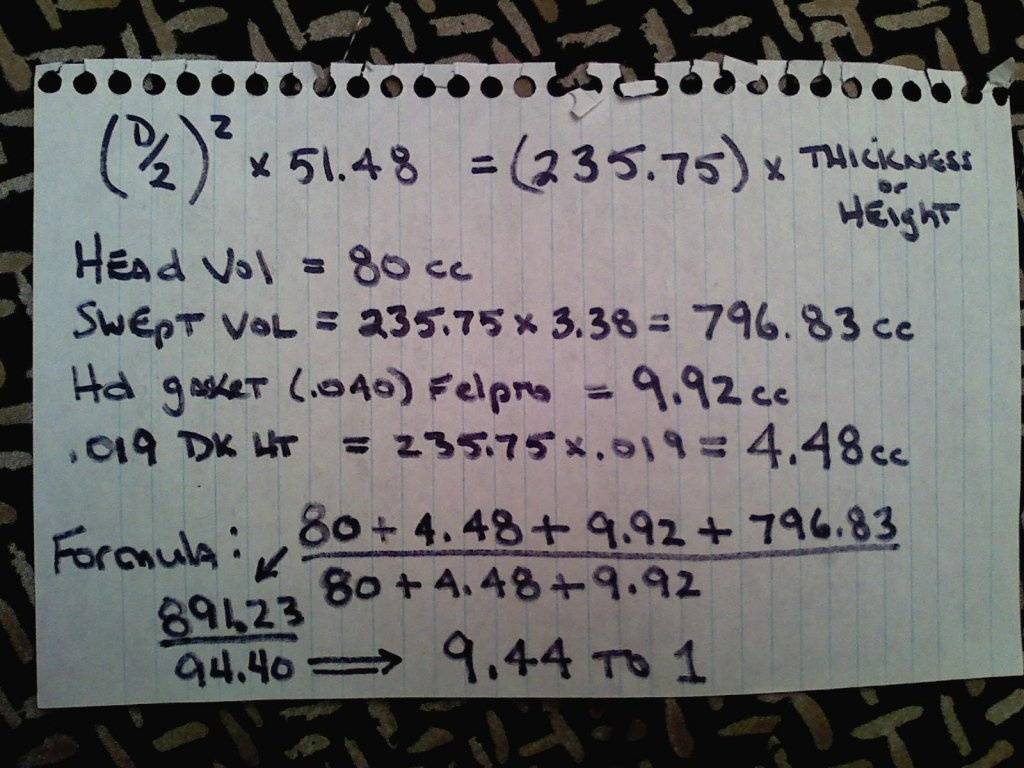 (D/2)² × 51.48 = (235.75) × THICKNESS or HEIGHT
HEAD VOL = 80 cc
SWEPT VOL = 235.75 × 3.38 = 796.83 cc
Hd gasket (.040) Felpro = 9.92 cc
.019 DK HT = 235.75 × .019 = 4.48 cc
Formula: 80 + 4.48 + 9.92 + 796.83
80 + 4.48 + 9.92
891.23
94.40 ⟹ 9.44 TO 1